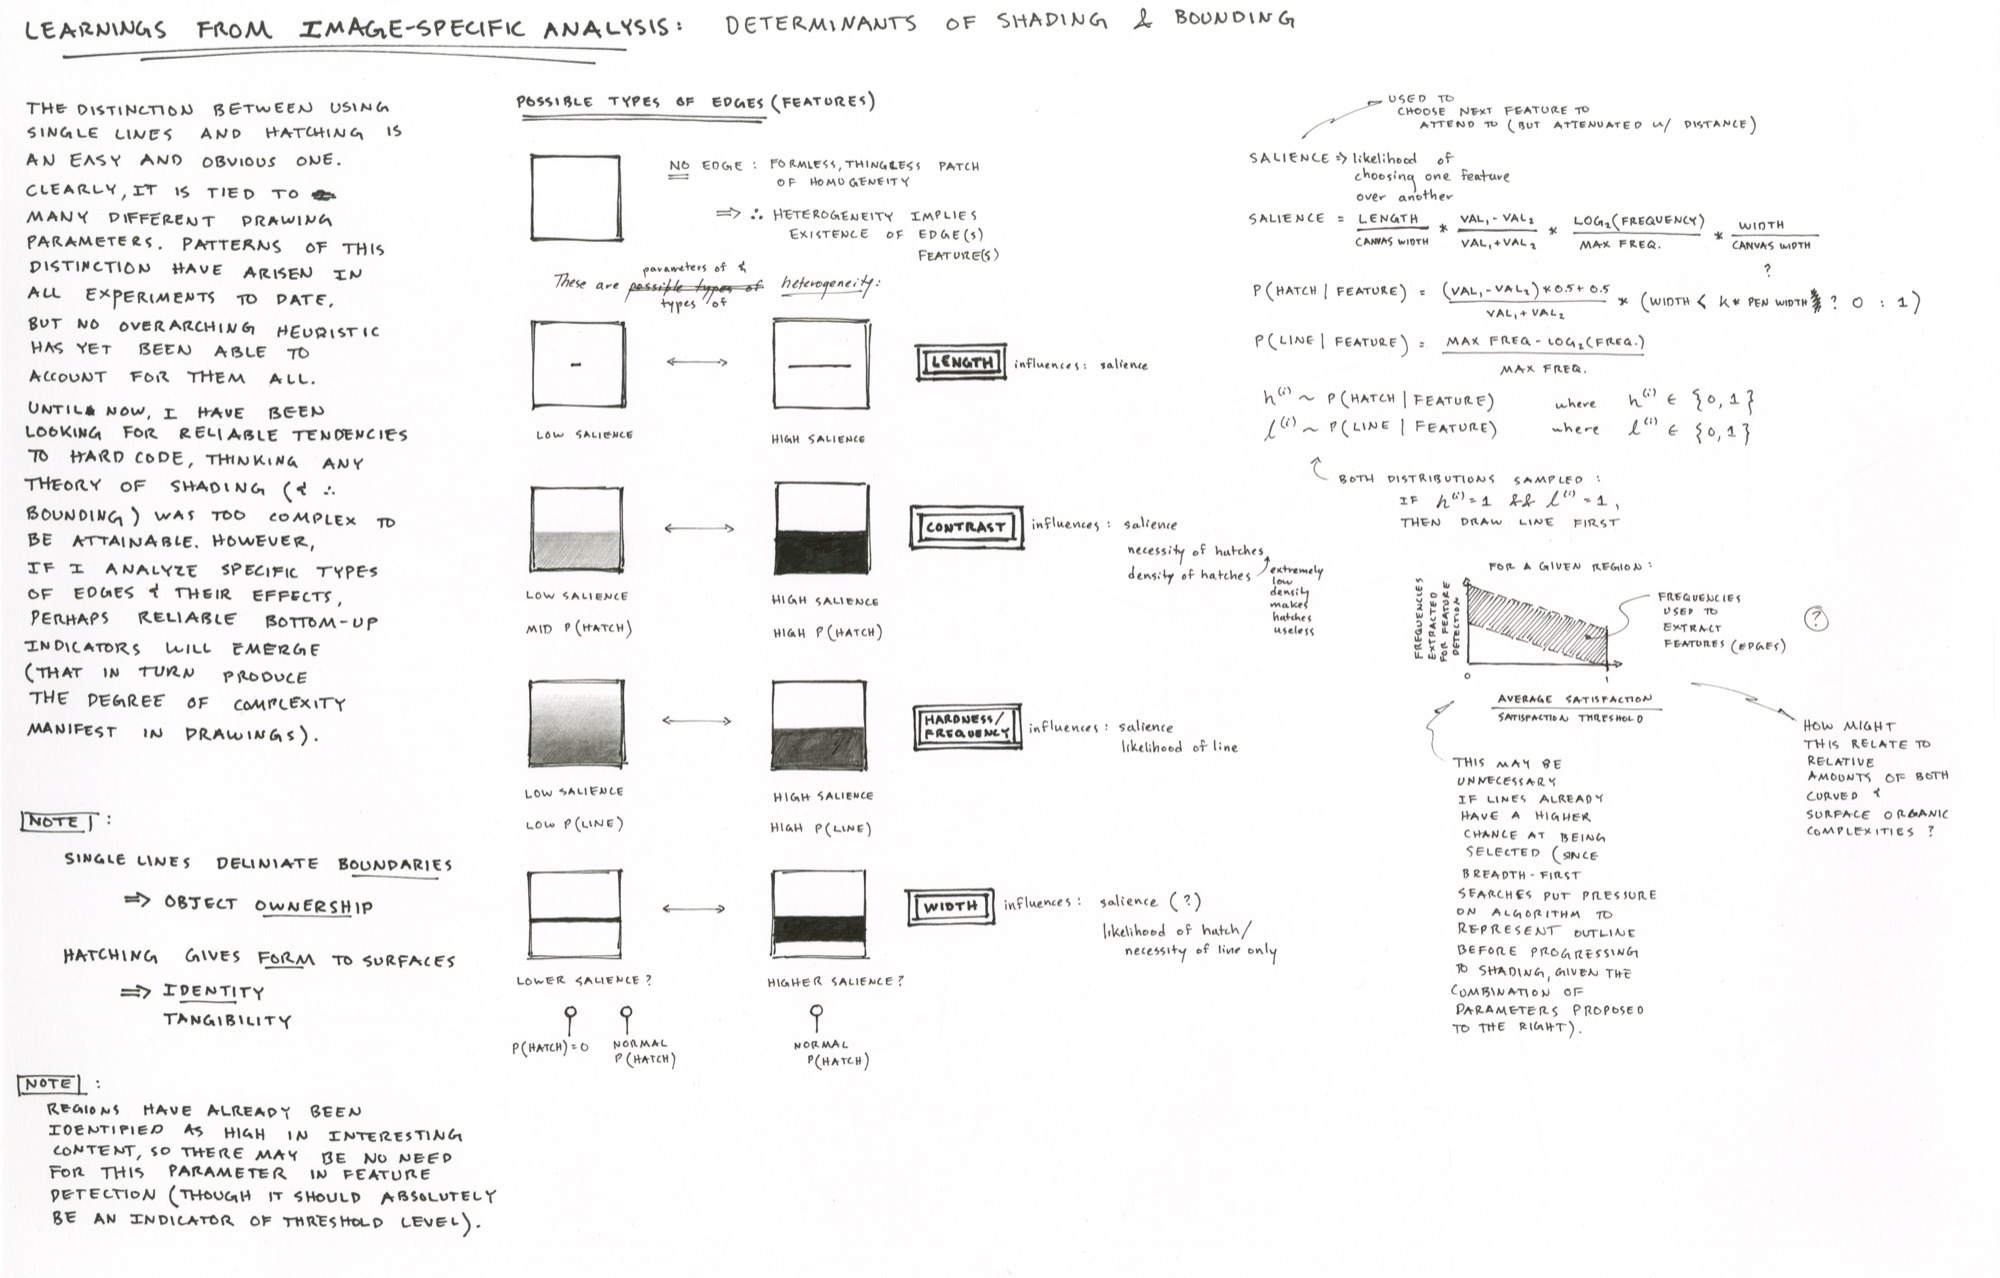 LEARNINGS FROM IMAGE-SPECIFIC ANALYSIS: DETERMINANTS OF SHADING & BOUNDING
THE DISTINCTION BETWEEN USING
SINGLE LINES AND HATCHING IS
AN EASY AND OBVIOUS ONE.
CLEARLY, IT IS TIED TO
MANY DIFFERENT DRAWING
PARAMETERS. PATTERNS OF THIS
DISTINCTION HAVE ARISEN IN
ALL EXPERIMENTS TO DATE,
BUT NO OVERARCHING HEURISTIC
HAS YET BEEN ABLE TO
ACCOUNT FOR THEM ALL.
UNTIL NOW, I HAVE BEEN
LOOKING FOR RELIABLE TENDENCIES
TO HARD CODE, THINKING ANY
THEORY OF SHADING (& ∴
BOUNDING) WAS TOO COMPLEX TO
BE ATTAINABLE. HOWEVER,
IF I ANALYZE SPECIFIC TYPES
OF EDGES & THEIR EFFECTS,
PERHAPS RELIABLE BOTTOM-UP
INDICATORS WILL EMERGE
(THAT IN TURN PRODUCE
THE DEGREE OF COMPLEXITY
MANIFEST IN DRAWINGS).
NOTE :
SINGLE LINES DELINIATE BOUNDARIES
⇒ OBJECT OWNERSHIP
HATCHING GIVES FORM TO SURFACES
⇒ IDENTITY
TANGIBILITY
NOTE :
REGIONS HAVE ALREADY BEEN
IDENTIFIED AS HIGH IN INTERESTING
CONTENT, SO THERE MAY BE NO NEED
FOR THIS PARAMETER IN FEATURE
DETECTION (THOUGH IT SHOULD ABSOLUTELY
BE AN INDICATOR OF THRESHOLD LEVEL).
POSSIBLE TYPES OF EDGES (FEATURES)
NO EDGE : FORMLESS, THINGLESS PATCH
OF HOMOGENEITY
⇒ ∴ HETEROGENEITY IMPLIES
EXISTENCE OF EDGE(S)
FEATURE(S)
parameters of &
These are possible types of heterogeneity:
types of
LENGTH influences: salience
LOW SALIENCE HIGH SALIENCE
CONTRAST influences: salience
necessity of hatches
density of hatches
extremely
low
density
makes
hatches
useless
LOW SALIENCE HIGH SALIENCE
MID P(HATCH) HIGH P(HATCH)
HARDNESS/
FREQUENCY
influences: salience
likelihood of line
LOW SALIENCE HIGH SALIENCE
LOW P(LINE) HIGH P(LINE)
WIDTH influences: salience (?)
likelihood of hatch/
necessity of line only
LOWER SALIENCE? HIGHER SALIENCE?
P(HATCH)=0 NORMAL P(HATCH) NORMAL P(HATCH)
USED TO
CHOOSE NEXT FEATURE TO
ATTEND TO (BUT ATTENUATED W/ DISTANCE)
SALIENCE ⇒ likelihood of
choosing one feature
over another
SALIENCE = LENGTH / CANVAS WIDTH * VAL₁-VAL₂ / VAL₁+VAL₂ * LOG₂(FREQUENCY) / MAX FREQ. * WIDTH / CANVAS WIDTH
?
P(HATCH | FEATURE) = (VAL₁-VAL₂)*0.5+0.5 / VAL₁+VAL₂ * (WIDTH < k* PEN WIDTH ? 0 : 1)
P(LINE | FEATURE) = MAX FREQ - LOG₂(FREQ.) / MAX FREQ.
h⁽ⁱ⁾ ~ P(HATCH | FEATURE) where h⁽ⁱ⁾ ∈ {0,1}
l⁽ⁱ⁾ ~ P(LINE | FEATURE) where l⁽ⁱ⁾ ∈ {0,1}
BOTH DISTRIBUTIONS SAMPLED :
IF h⁽ⁱ⁾=1 && l⁽ⁱ⁾=1,
THEN DRAW LINE FIRST
FOR A GIVEN REGION:
FREQUENCIES
EXTRACTED
FOR FEATURE
DETECTION
FREQUENCIES
USED TO
EXTRACT
FEATURES (EDGES)
?
0 1
AVERAGE SATISFACTION
SATISFACTION THRESHOLD
THIS MAY BE
UNNECESSARY
IF LINES ALREADY
HAVE A HIGHER
CHANCE AT BEING
SELECTED (SINCE
BREADTH-FIRST
SEARCHES PUT PRESSURE
ON ALGORITHM TO
REPRESENT OUTLINE
BEFORE PROGRESSING
TO SHADING, GIVEN THE
COMBINATION OF
PARAMETERS PROPOSED
TO THE RIGHT).
HOW MIGHT
THIS RELATE TO
RELATIVE
AMOUNTS OF BOTH
CURVED &
SURFACE ORGANIC
COMPLEXITIES ?